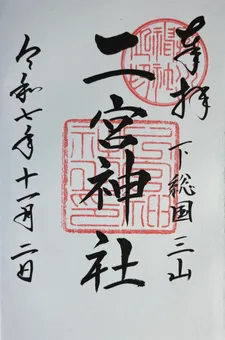 奉拝
下総国三山
二宮神社
令和七年十一月二日